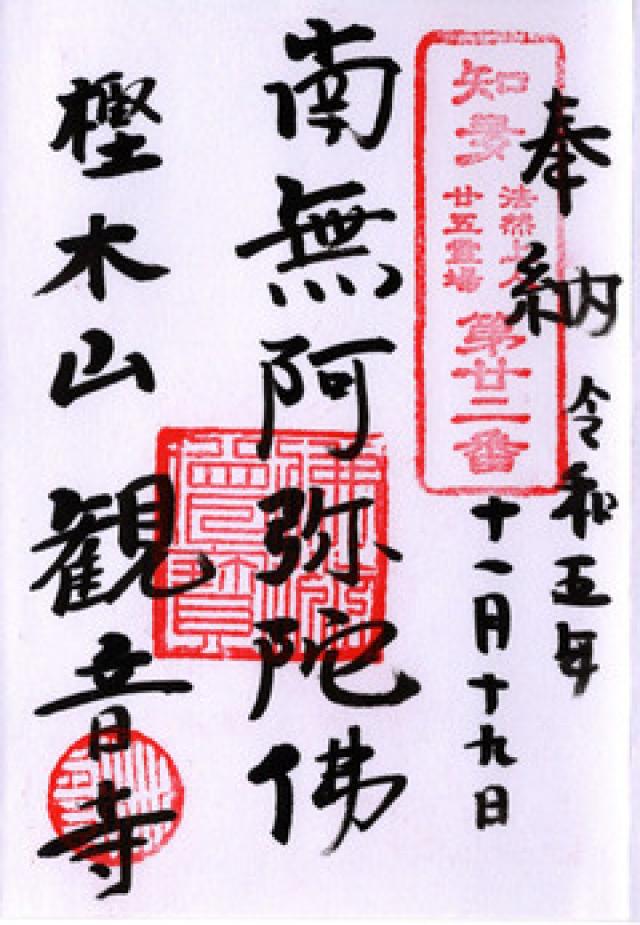 奉納 令和五年
十一月十九日
知多
法然上人
廿五霊場
第廿二番
南無阿弥陀佛
佛法僧寶
樫木山 観音寺